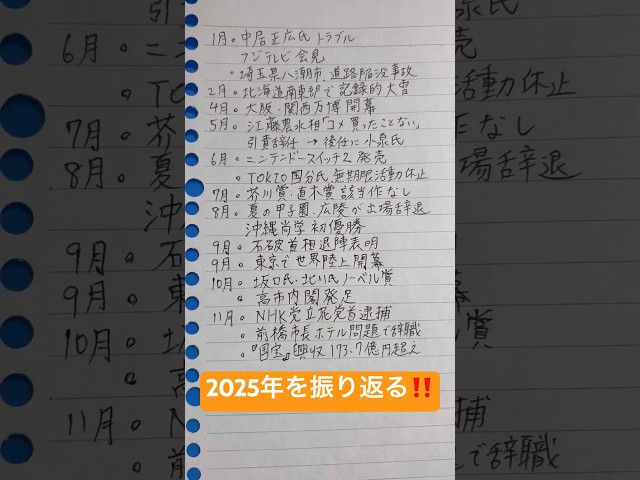 1月。中居正広氏トラブル
フジテレビ会見
。埼玉県八潮市.道路陥没事故
2月。北海道南東部で記録的大雪
4月。大阪・関西万博開幕
5月。江藤農水相「コメ買ったことない」
引責辞任 → 後任に小泉氏
6月。ニンテンドースイッチ2 発売
。TOKIO国分氏無期限活動休止
7月。芥川賞.直木賞該当作なし
8月。夏の甲子園.広陵が出場辞退
沖縄尚学初優勝
9月。石破首相退陣表明
9月。東京で世界陸上開幕
10月。坂口氏.北川氏ノーベル賞
。高市内閣発足
11月。NHK党立花党首逮捕
。前橋市長ホテル問題で辞職
。『国宝』興収173.7億円超え
2025年を振り返る‼️